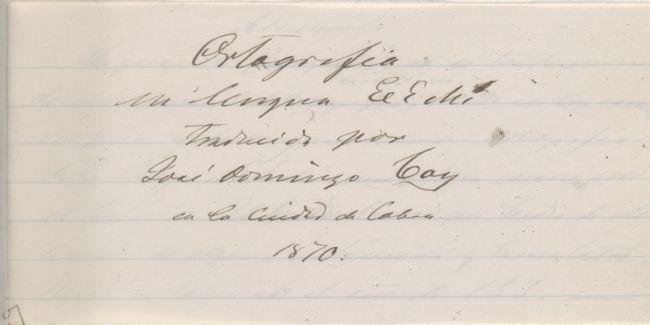 Ortografia
en lengua EeEchi
traducida por
José Domingo Coy
en la Ciudad de Coban
1870.